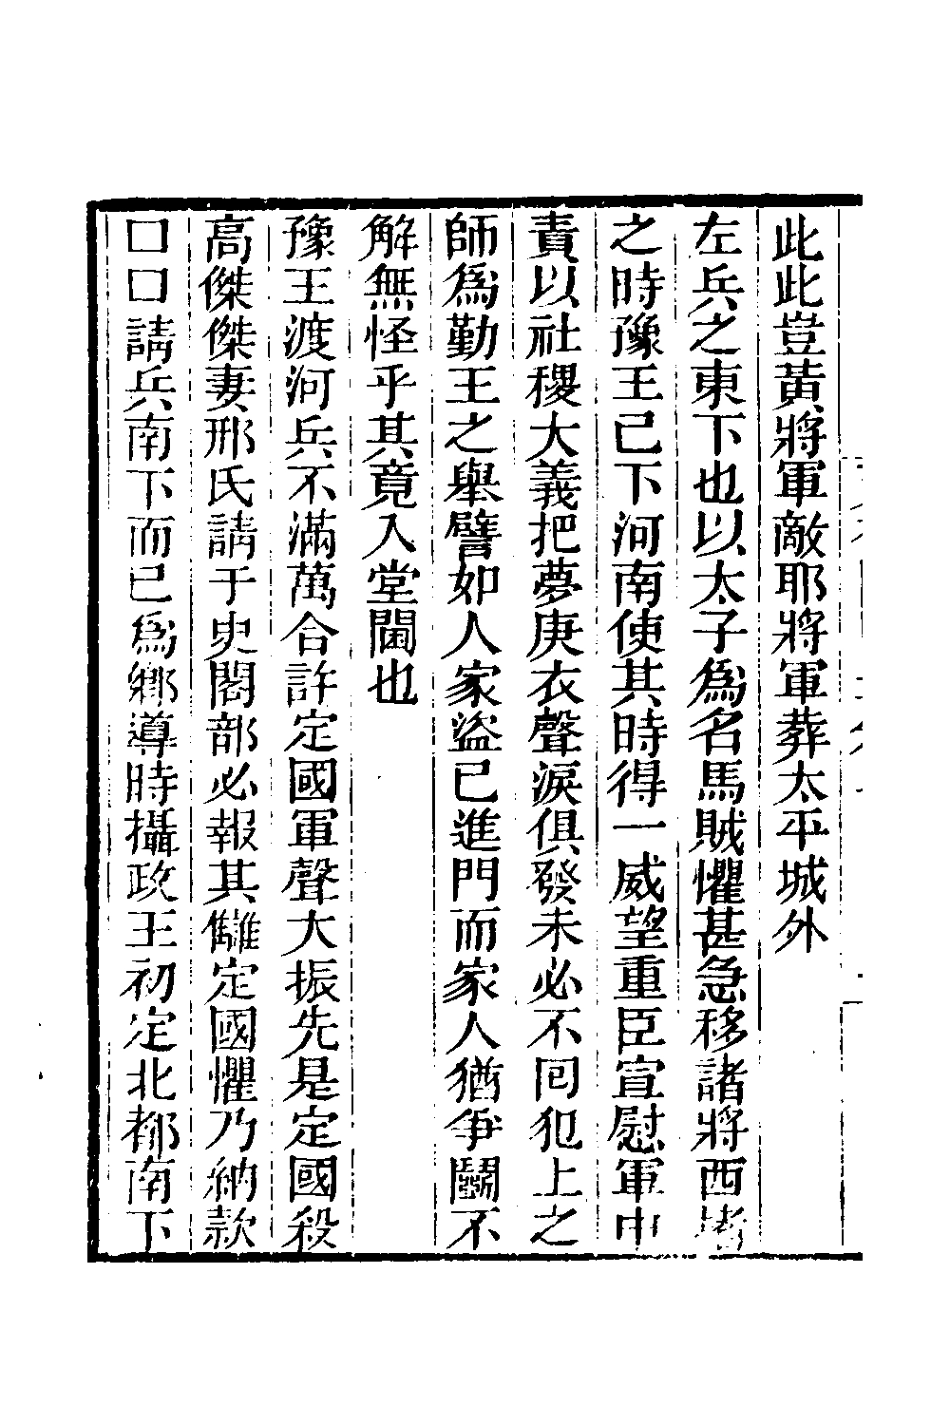 此此豈黃將軍敵耶將軍葬太平城外
左兵之東下也以太子爲名馬賊懼甚急移諸將西堵
之時豫王已下河南使其時得一威望重臣宣慰軍中
責以社稷大義把夢庚衣聲淚俱發未必不囘犯上之
師爲勤王之舉譬如人家盜已進門而家人猶爭鬭不
解無怪乎其竟入堂閫也
豫王渡河兵不滿萬合許定國軍聲大振先是定國殺
高傑傑妻邢氏請于史閣部必報其讎定國懼乃納款
口口請兵南下而已爲鄉導時攝政王初定北都南下